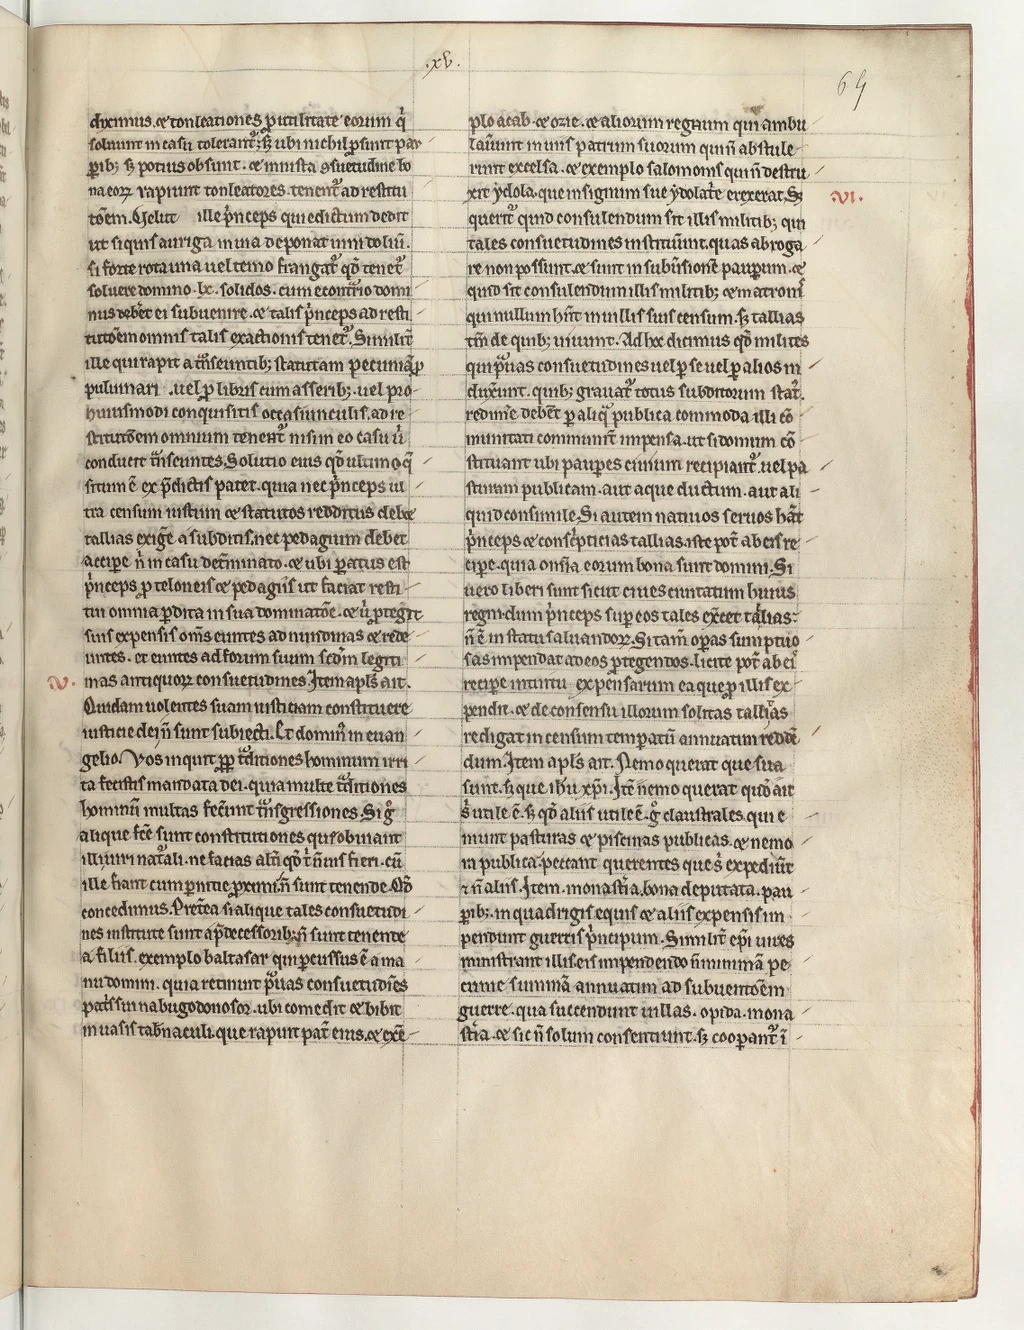 .xv.
65
diximus. & tonleationes ꝑ utilitate eorum q̇
soluunt in casu tolerant᷑; sꝫ ubi nichil ꝓsunt pau
ꝑibꝫ sꝫ potius obsunt. & iniusta ꝯsuetudine bo
na eoꝝ rapiunt tonleatores. tenent᷑ ad restitu
tōem. Uelut ille p̄nceps qui edictum dedit
ut si quis auriga in uia deponat uini doliū.
si forte rota una uel temo frangat᷑ qd̄ tenet᷑
soluere domino .lx. solidos. cum econtrͣio domi
nus deb&t ei subuenire. & talis p̄nceps ad resti
tutōem omnis talis exactionis tenet᷑. Similit̄
ille qui rapit a tͣnseuntibꝫ statutam pecuniā ꝓ
puluinari uel ꝓ libris cum asseribꝫ. uel pro
huiusmodi conquisitis occasiunculis. ad re
stitutōem omnium tenent᷑ nisi in eo casu
conducit tͣnseuntes. Solutio eius qd̄ ultimo q̄
situm ē ex p̄dictis patet. quia nec p̄nceps ul
tra censum iustum & statutos redditus debet
tallias exiḡe a subditis. nec pedagium debet
accipe n̄ in casu det̄minato. & ubi ꝑatus est
p̄nceps ꝓ teloneis & pedagiis ut faciat resti
tui omnia ꝑdita in sua dominatōe. & ꝓtegit
suis expensis om̄s euntes ad nundinas & rede
untes. et euntes ad forum suum scdm̄ legiti
.V. mas antiquoꝝ consuetudines. Item apl̄s ait.
Quidam uolentes suam iusticiam constituere
iusticie dei n̄ sunt subiecti. Et domin᷒ in euan
gelio. Vos inquit ꝓpꝑ tͣditiones hominum irri
ta fecistis mandata dei. quia multe tͣditiones
hominū multas fec̄unt tͣnsgressiones. Si g̊
alique fc̄e sunt constitutiones que obuiant
illi iuri natͣali. ne facias alii qd̄ t̄ n̄ uis fieri. cū
ille fiant cum ꝑnitie ꝓximi. n̄ sunt tenende. Qd̄
concedimus. Pret̄ea si alique tales consuetudi
nes institute sunt a p̄decessoribꝫ. n̄ sunt tenende
a filiis. exemplo baltasar qui ꝑcussus ē a ma
nu domini. quia retinuit pͣuas consuetudīes
patͥs sui nabugodonosor. ubi comedit & bibit
in uasis tab̄naculi. que rapuit pat̄ eius. & exē
plo acab. & ozie. & aliorum regnum qui ambu
lau̅unt in uiis patrum suorum qui n̄ abstule
runt excelsa. & exemplo salomonis qui n̄ destru
xit ydola. que in signum sue ydolatͥe erexerat. Sꝫ
.VI. querit᷑ quid consulendum sit illis militibꝫ qui
tales consuetudines instituūnt. quas abroga
re non possunt. & sunt in subūsionē pauꝑum. &
quid sit consulendum illis militibꝫ & matronis
qui nullum hn̄t in uillis suis censum. sꝫ tallias
tm̄ de quibꝫ uiuunt. Ad hec dicimus qd̄ milites
qui pͣuas consuetudines uel ꝑ se uel ꝑ alios in
dux̄unt. quibꝫ grauat᷑ totus subditorum stat᷒.
redimͥe debēt ꝑ aliqͣ publica commoda illi cō
munitati communit̄ impensa. ut si domum cō
stituant ubi pauꝑes ciuium recipiant᷑. uel pa
sturam publicam. aut aque ductum. aut ali
quid consimile. Si autem natiuos seruos hāt
p̄nceps & consc̄pticias tallias. iste pot̄ ab eis re
cipe. quia om̄ia eorum bona sunt domini. Si
uero liberi sunt sicut ciues ciuitatum huius
regni. dum p̄nceps suꝑ eos tales ex̄cet tallias:
n̄ ē in statu saluandoꝝ. Si tam̄ oꝑas sumptuo
sas impendat ad eos ꝓtegendos. licite pot̄ ab eis
recipe intuitu expensarum ea que ꝓ illis ex
pendit. & de consensu illorum solitas tallias
redigat in censum temperatū annuatim redden
dum. Item apl̄s ait. Nemo querat que sua
sunt. sꝫ que ih̄u xp̄i. It̄ē nemo querat quod aū
s̄ utile ē. sꝫ qd̄ aliis utile ē. g̊ claustrales qui e
munt pasturas & piscinas publicas. & nemo
in publica. peccant querentes que s̄ expediūt
⁊ n̄ aliis. Item. monastͥia bona deputata. pau
ꝑibꝫ. in quadrigis equis & aliis expensis im
pendunt guerris p̄ncipum. Similit̄ ep̄i uires
ministrant illis eis impendendo n̄ minimā pe
cunie summā annuatim ad subuentōem
guerre. qua succendunt uillas. opida. mona
stͥia. & sic n̄ solum consentiunt. sꝫ cooꝑant᷑ ī